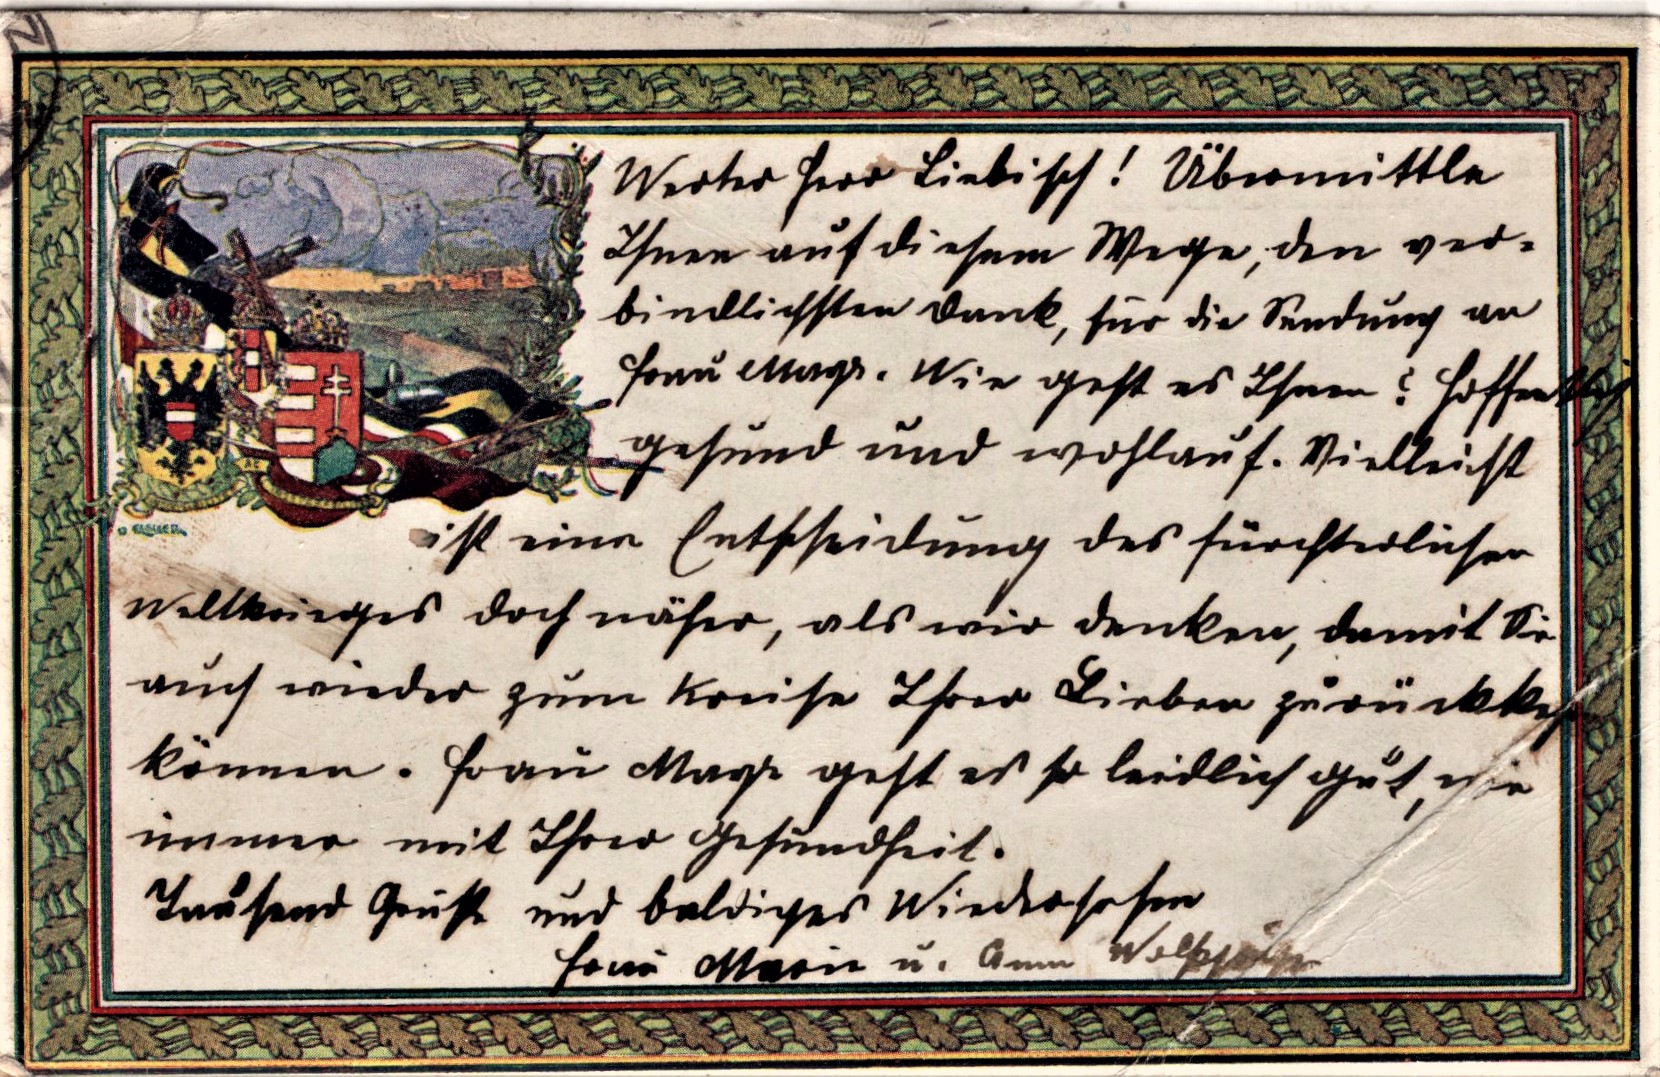 Werter Herr Liebisch! Übermittle
Ihnen auf diesem Wege, den ver-
bindlichsten Dank, für die Sendung an
Frau Mayr. Wie geht es Ihnen? Hoffentlich
gesund und wohlauf. Vielleicht
ist eine Entscheidung des fürchterlichen
Weltkrieges doch näher, als wir denken, damit Sie
auch wieder zum Kreise Ihrer Lieben
können. Frau Mayr geht es so leidlich gut, wie
immer mit Ihrer Gesundheit.
Tausend Grüße und baldiges Wiedersehen
Frau Marie u. Anna